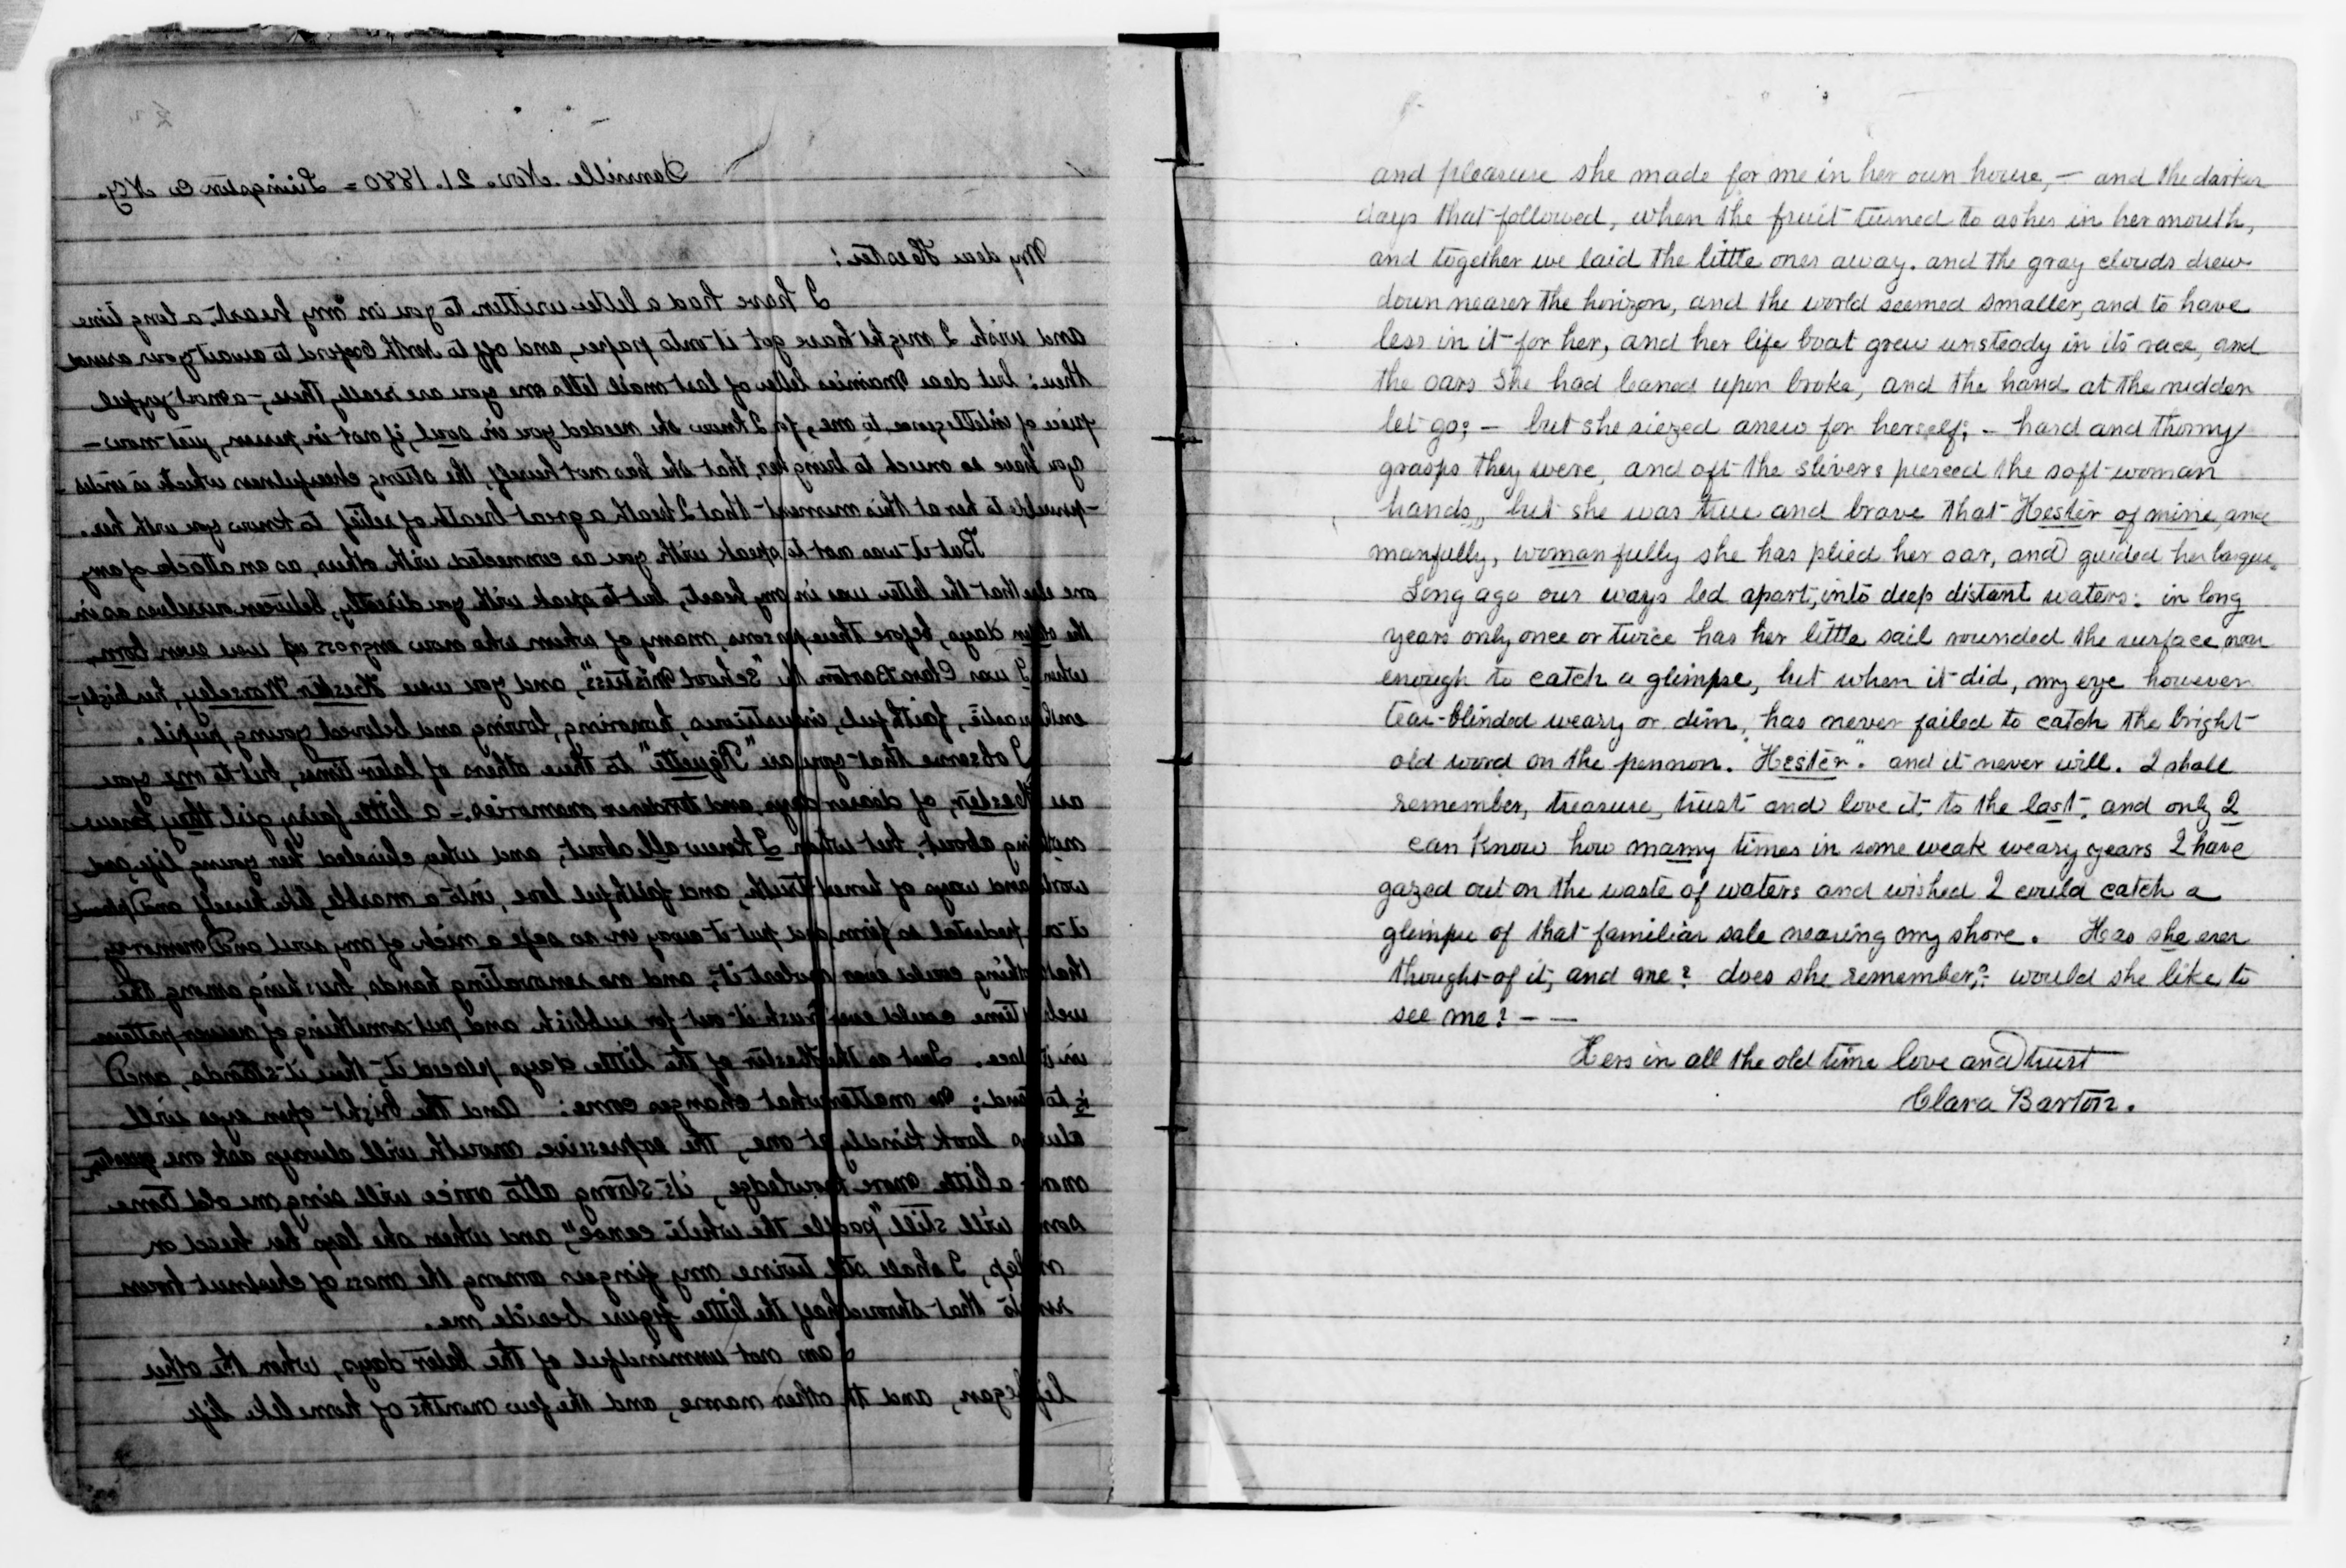 Dansville Nov. 21. 1880 = Livingston Co N.Y.
My dear Hester:
I have had a letter written to you in my heart a long time
and wish I might have got it onto paper, and off to North Oxford to await your arrival
there: but dear Mamies letter of last mail tells me you are really there, - a most joyful
piece of intelligence to me, for I know she needed you in soul, if not in person, just now -
you have so much to bring her, that she has not herself, the strong cheerfulness which is indis-
-pensable to her at this moment that I breath a great breath of relief to know you with her.
But it was not to speak with you as connected with others, as an attache of any
one else that the letter was in my heart, but to speak with you directly, between ourselves as in
the olden days, before these persons, many of whom who now engross us were even born,
when I was Clara Barton the "School Mistress", and you were Hester Worseley, her bright,
enthusiastic, faithful, industrious, honoring, loving and beloved young pupil.
I observe that you are "Piquette" to these others of later times, but to me you
are Hester, of dearer days and tenderer memories. - a little fairy girl they knew
nothing about, but whom I knew all about, and who chiseled her young life, and
work and ways of honest truth, and faithful love, into a marble, like herself and placed
it on pedestal so firm and put it away in so safe a nich of my soul and memory
that nothing could ever molest it, and no renovating hands, brushing among the
webs of time could ever brush it out for rubbish and put something of newer pattern
in its place. Just as the Hester of the little days placed it, there it stands, and
is to stand; no matter what changes come: And the bright open eyes will
always look kindly at me, the expressive mouth will always ask me questions,
a little more knowledge, its strong alto voice will sing me old time
will still "paddle the white canoe", and when she lays her head on
my lap, I shall still twine my fingers among the mass of chestnut brown
that shroud half the little figure beside me.
I am not unmindful of the later days, when the other
life began, and the other name, and the few months of homelike life
and pleasure she made for me in her own house, - and the darker
days that followed, when the fruit turned to ashes in her mouth,
and together we laid the little ones away. and the gray clouds drew
down nearer the horizon, and the world seemed smaller, and to have
less in it for her, and her life boat grew unsteady in its race, and
the oars she had leaned upon broke, and the hand at the rudder
let go; - but she siezed anew for herself; - hard and thorny
grasps they were, and oft the slivers pierced the soft woman
hands, but she was true and brave that Hester of mine, and
manfully, womanfully she has plied her oar, and guided her barque.
Long ago our ways led apart, into deep distant waters: in long
years only once or twice has her little sail rounded the surface near
enough to catch a glimpse, but when it did, my eye however
tear-blinded weary or dim, has never failed to catch the bright
old word on the pennon. "Hester". and it never will. I shall
remember, treasure, trust and love it to the last. and only I
can know how many times in some weak weary years I have
gazed out on the waste of waters and wished I could catch a
glimpse of that familiar sale nearing my shore. Has she ever
thought of it, and me? does she remember,? would she like to
see me? - -
Hers in all the old time love and trust
Clara Barton.